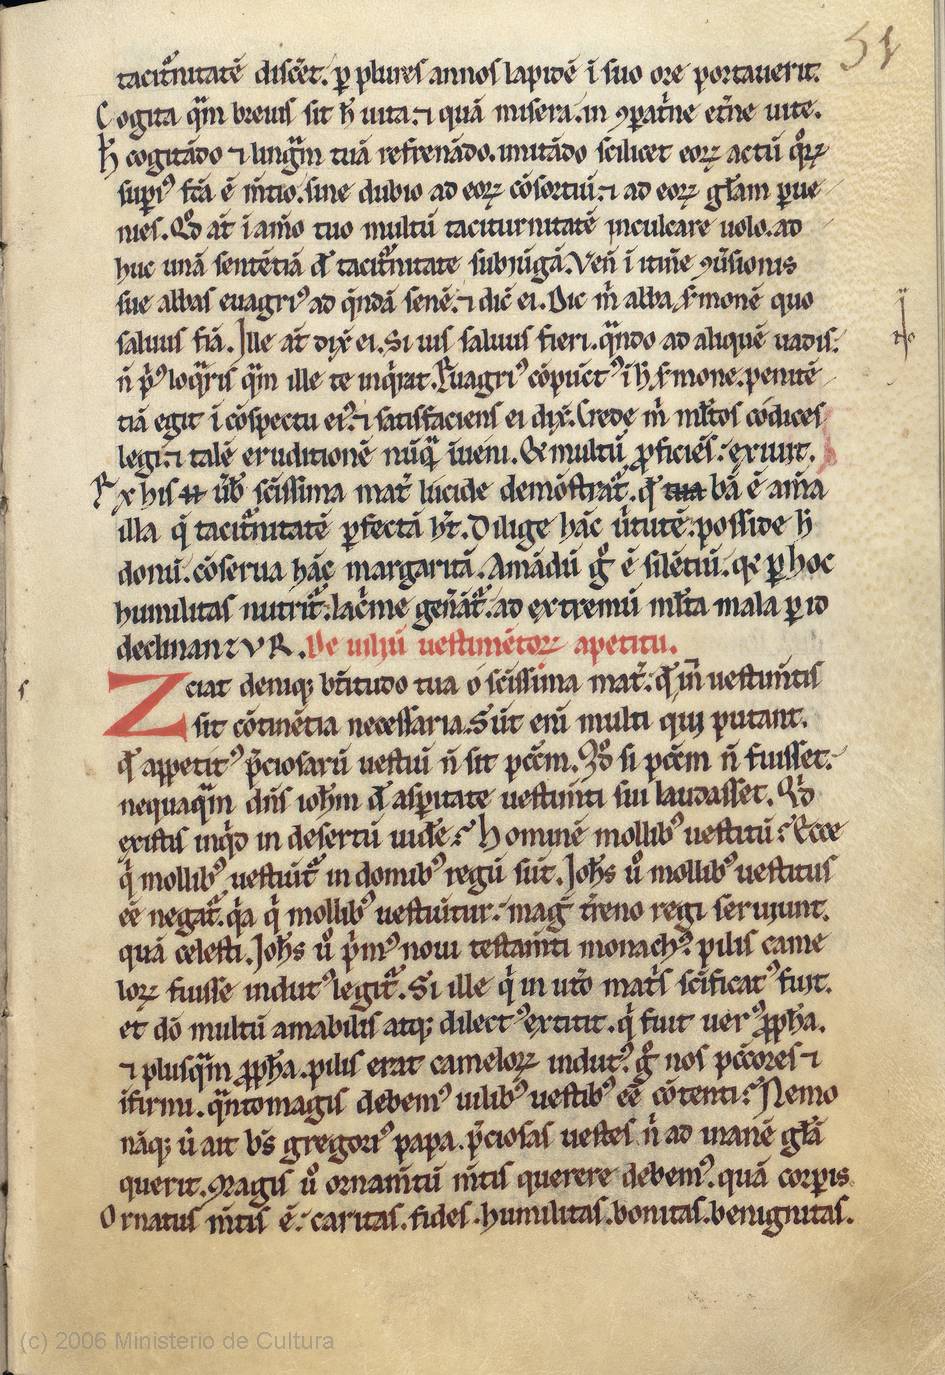 51
tacit᷑nitatē discēt. ꝑ plures annos lapidē ī suo ore portauerit.
Cogita qᷓm breuis sit h̄ uita. ⁊ quā misera. in ꝯparat̄ne et̄ne uite.
H̄ cogitādo ⁊ lingᷓm tuā refrenādo. imitādo scilicet eoꝝ actū qͦꝝ
supiꝰ fc̄a ē m̄tio. sine dubio ad eoꝝ cōsortiū. ⁊ ad eoꝝ gl̄am ꝑue
nies. Qͦd at̄ ī aīmo tuo multū taciturnitatē inculcare uolo. ad
huc unā sentētiā đ tacit᷑nitate subiūgā. Ven̄ ī itin̄e ꝯūsionis
sue abbas euagriꝰ ad qͥndā senē. ⁊ dic̄ ei. Dic m̄ abba s̄monē quo
saluus fiā. Ille at̄ dix̄ ei. Si uis saluus fieri. qᷓndo ad aliquē uadis.
n̄ pͥꝰ loqᷓris qᷓm ille te inqͥrat. Euagriꝰ cōpūctꝰ ī h̄ s̄mone. penitē
tiā egit ī cōspectu eiꝰ. ⁊ satisfaciens ei dix̄. Crede m̄ ml̄tos codices
legi. ⁊ talē eruditionē nūqᷓ īueni. Et multū ꝓficiēs. exiuit.
Ex his ūb̄ sc̄issima mat̄ lucide demōstrat᷑. qđ bā ē aīma
illa q̄ tacit᷑nitatē ꝑfectā h̄t. Dilige hāc ūtutē. posside h̄
donū. cōserua hāc margaritā. Amādū gͦ ē silētiū. qꝛ ꝑ hoc
humilitas nutrit᷑. lac̄me gen̄āt᷑. ad extremū ml̄ta mala ꝑ id
declinanzVR. De uiliū uestimētoꝝ apetitu.
Sciat deniqꝫ bt̄itudo tua o sc̄issima mat̄. qđ in uestim̄tis
sit cōtinētia necessaria. Sūt enī multi qui putant.
qđ appetitꝰ p̄ciosarū uestiū n̄ sit pcc̄m. Qͦd si pcc̄m n̄ fuisset.
nequaqᷓm dn̄s ioh̄m đ aspitate uestim̄ti sui laudasset. Qͥd
existis inqͥd in desertū uid̄e. Hominē mollibꝰ uestitū? Ecce
qͥ mollibꝰ uestiūt᷑ in domibꝰ regū sūt. Joh̄s uͦ mollibꝰ uestitus
eē negat᷑. qͥa qͥ mollibꝰ uestiūtur. maḡ tr̄reno regi seruiunt.
quā celesti. Joh̄s uͦ pͥmꝰ noui testam̄ti monachꝰ. pilis came
loꝝ fuisse indutꝰ legit᷑. Si ille qͥ in ut̄o mat̄s sc̄ificatꝰ fuit.
et dō multū amabilis atqꝫ dilectꝰ extitit. qͥ fuit uerꝰ ꝓph̄a.
⁊ plusqᷓm ꝓph̄a. pilis erat cameloꝝ indutꝰ. gͦ nos pcc̄ores ⁊
īfirmi. qᷓntomagis debemꝰ uilibꝰ uestibꝰ eē cōtenti? Nemo
nāqꝫ ū ait bt̄s gregoriꝰ papa. p̄ciosas uestes n̄ ad inanē gl̄ā
querit. Magis uͦ ornam̄tū m̄tis querere debemꝰ. quā corꝑis.
Ornatus m̄tis ē. caritas. fides. humilitas. bonitas. benignitas.
(c) 2006 Ministerio de Cultura